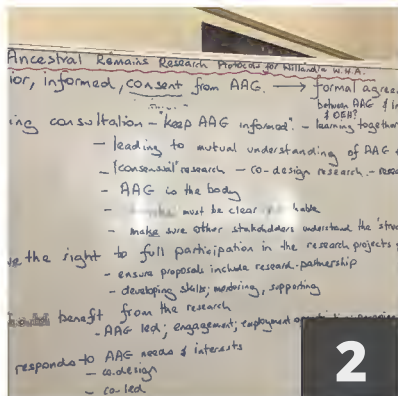 Ancestral Remains Research Protocols for Willandra W.H.A.
ior, informed, consent from AAG. → formal agree
between AAG &
& OEH?
ing consultation - "keep AAG informed". - learning together
- leading to mutual understanding of AAG
- 'consensual' research - co-design research. - rese
- AAG is the body
- must be clear
- make sure other stakeholders understand the 'struc
ve the right to full participation in the research projects
- ensure proposals include research-partnership
- developing skills; mentoring, supporting
benefit from the research
- AAG led; engagement; employment
responds to AAG needs & interests
- co-design
- co-led
2